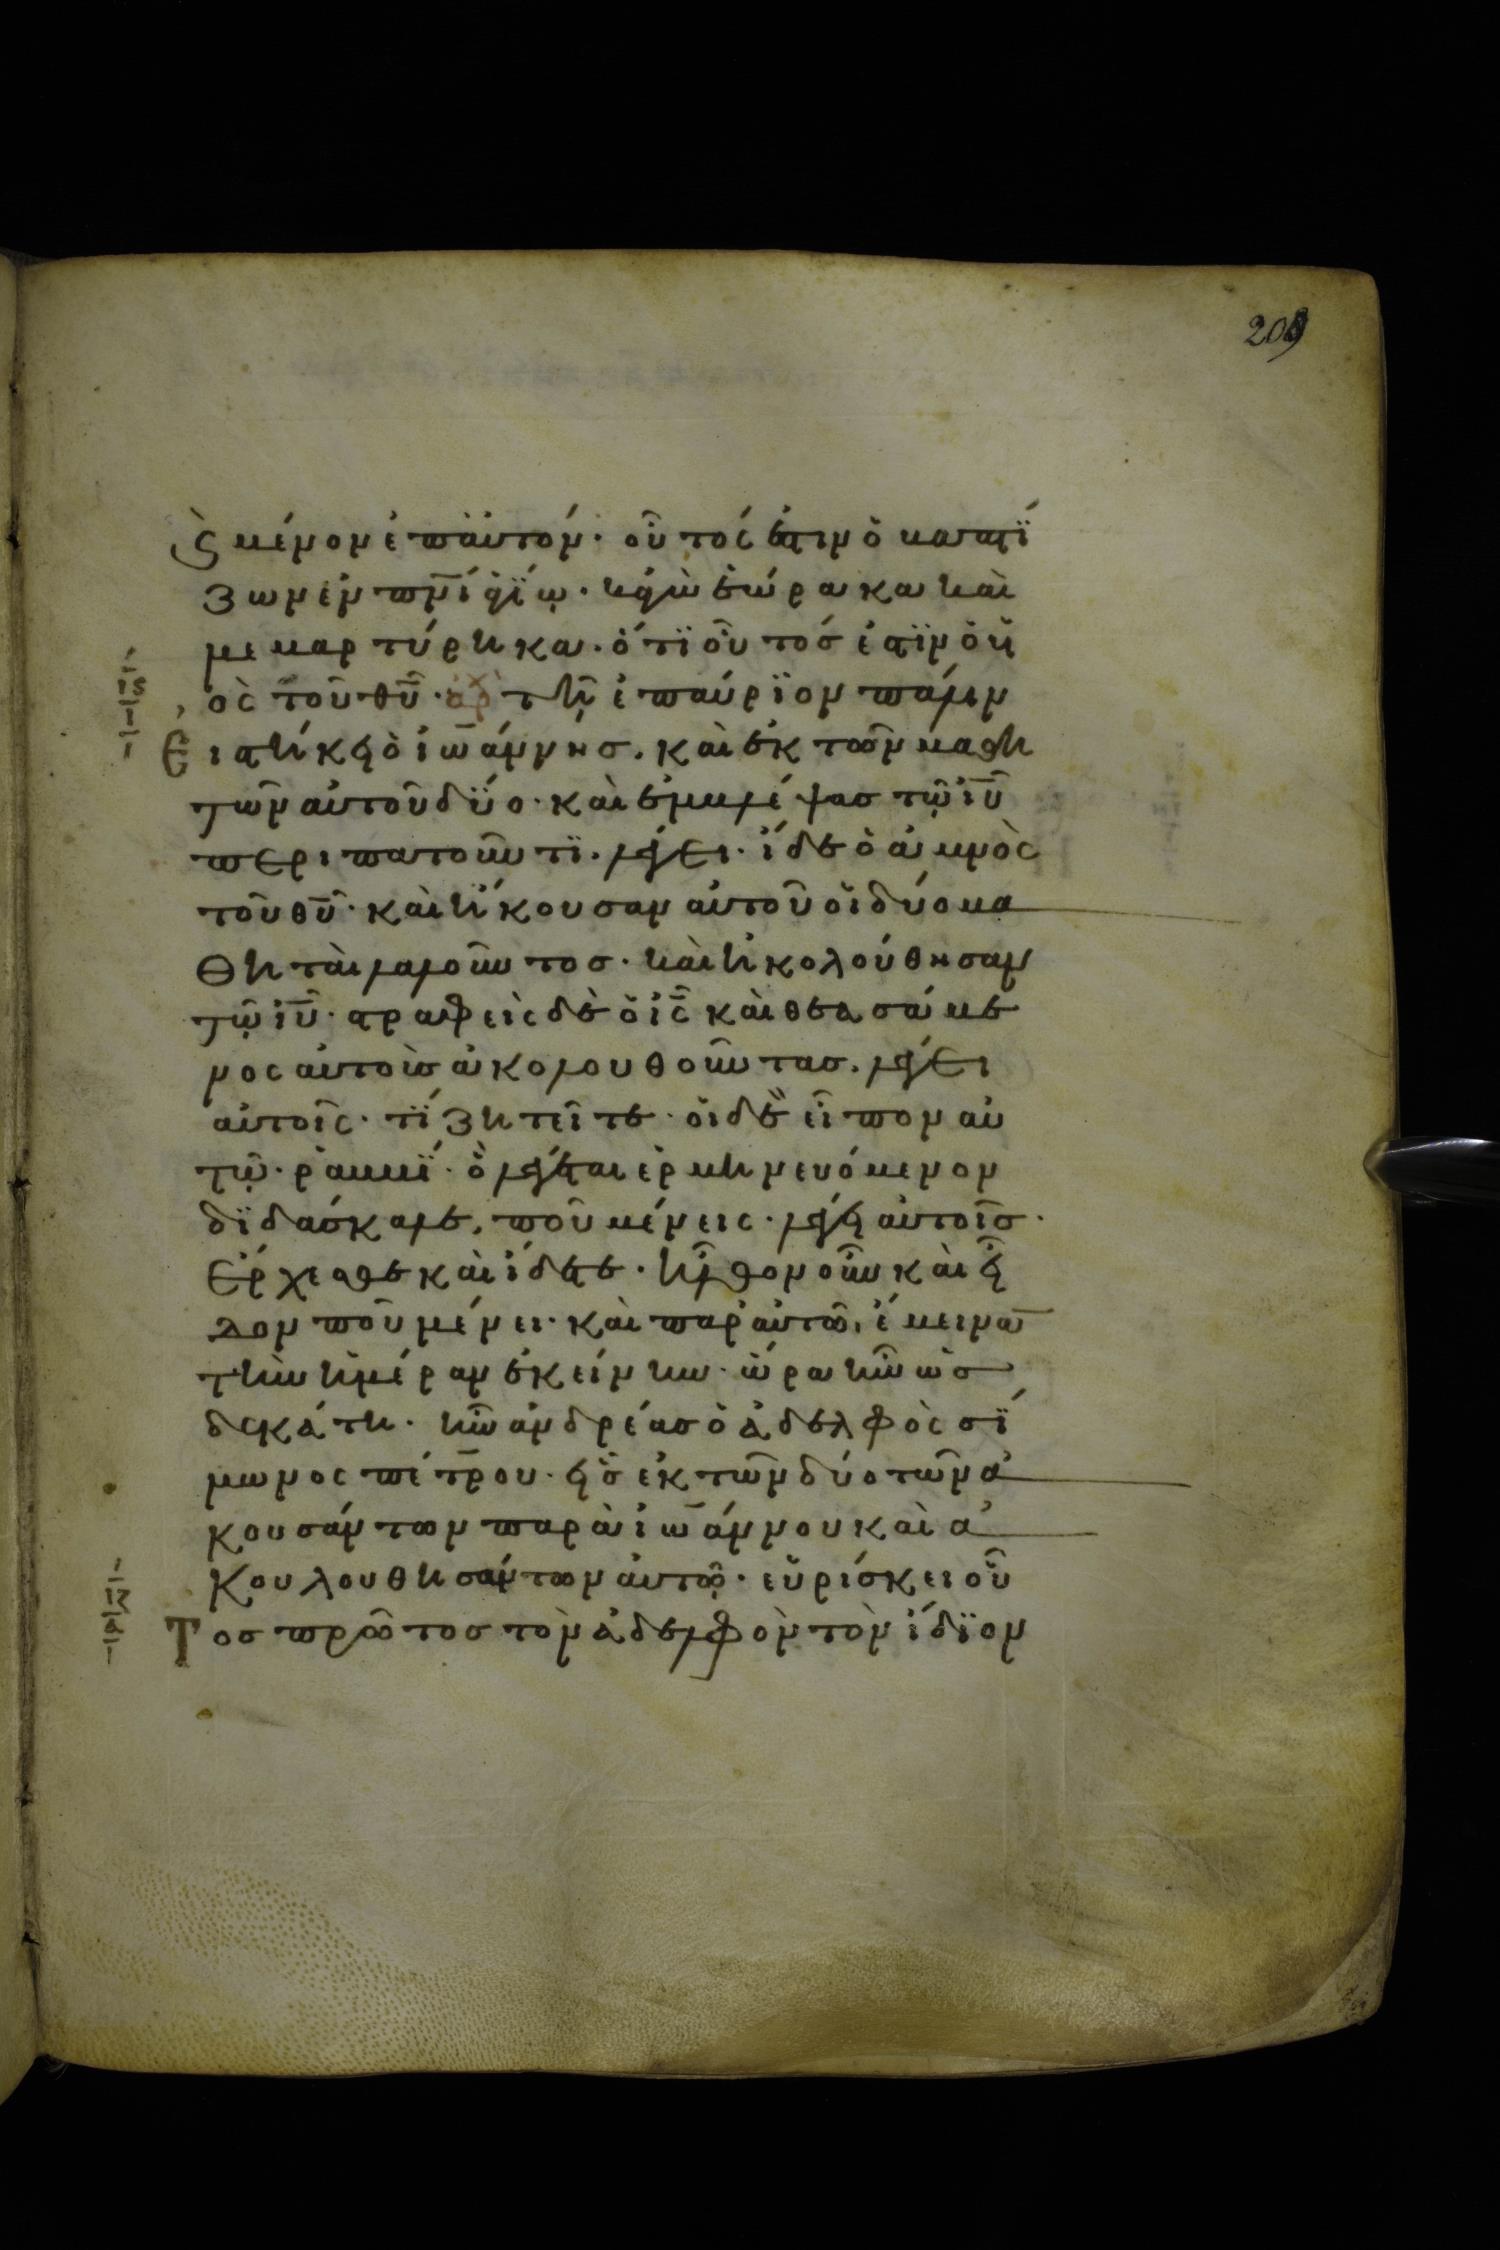 209
ϗ μένον ἐπ' αὐτόν· οὗτός ἐστιν ὁ βαπτί
ζων ἐν πν̅ι ἁγίῳ· κἀγὼ ἑώρακα καὶ
μεμαρτύρηκα· ὅτι οὗτός ἐστιν ὁ υἱ
ὸς τοῦ θυ̅· ἀρ τῆ ἐπαύριον πάλιν
ιϛ
ι
Εἱστήκει ὁ ἰωάννης. καὶ ἐκ τῶν μαθη
τῶν αὐτοῦ δύο· καὶ ἐμβλέψας τῷ ιυ̅
περιπατοῦντι. λέγει· ἴδε ὁ ἀμνὸς
τοῦ θυ̅· καὶ ἤκουσαν αὐτοῦ οἱ δύο μα
θηταὶ λαλοῦντος· καὶ ἠκολούθησαν
τῷ ιυ̅· στραφεὶς δὲ ὁ ις̅ καὶ θεασάμε
νος αὐτοὺς ἀκολουθοῦντας. λέγει
αὐτοῖς· τί ζητεῖτε· οἱ δὲ εἶπον αὐ
τῷ· ῥαββί· ὃ λέγεται ἑρμηνευόμενον
διδάσκαλε, ποῦ μένεις· λέγει αὐτοῖς·
ἔρχεσθε καὶ ἴδετε· ἦλθον οὖν καὶ εἶ
δον ποῦ μένει· καὶ παρ' αὐτῶ, ἔμεινα̅
τὴν ἡμέραν ἐκείνην· ὥρα ἦν ὡς
δεκάτη· ἦν ἀνδρέας ὁ ἀδελφὸς σί
μωνος πέτρου· εἷς ἐκ τῶν δύο τῶν ἀ
κουσάντων παρὰ ἰωάννου καὶ ἀ
κουλουθησάντων αὐτῷ· εὑρίσκει οὗ
ιζ
ι
Τος πρῶτος τὸν ἀδελφὸν τὸν ἴδιον